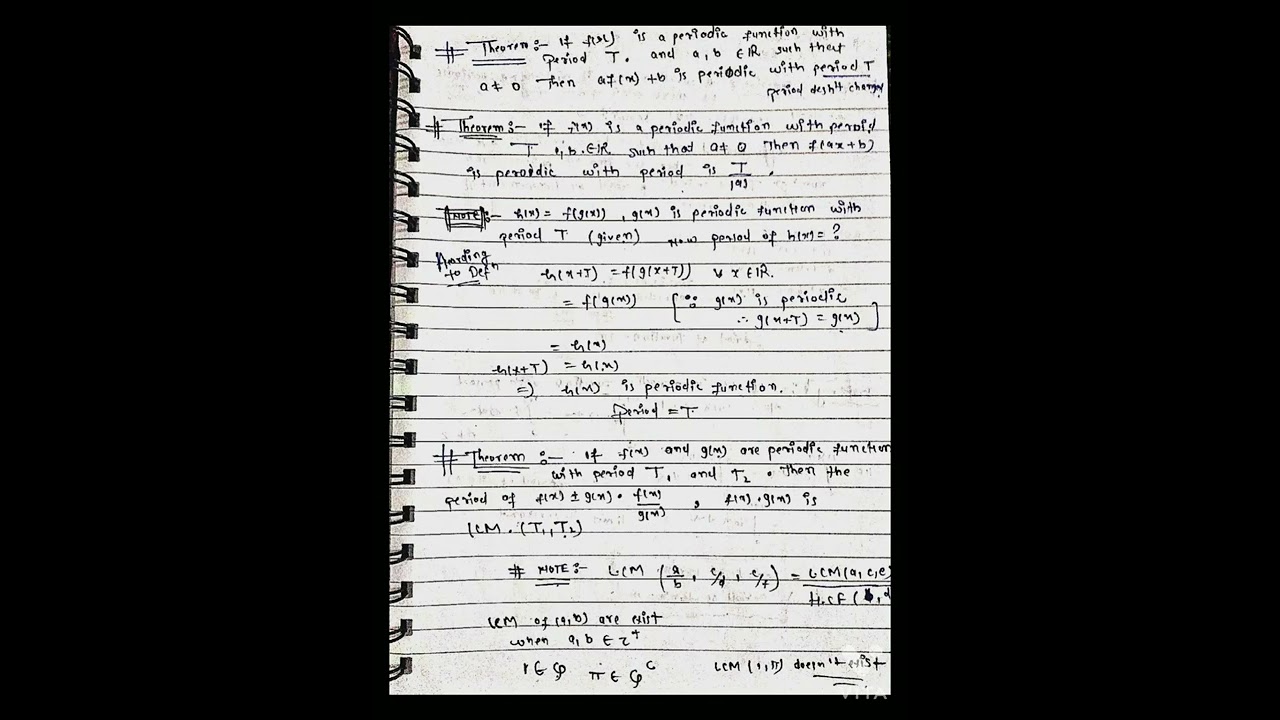 # Theorem :- If f(x) is a periodic function with
period T. and a, b ∈ ℝ such that
a ≠ 0 Then af(x) + b is periodic with period T
period desn't change
# Theorem :- If f(x) is a periodic function with period
T a, b. ∈ ℝ such that a ≠ 0 Then f(ax + b)
is peroidic with period is T/|a| .
NOTE :- h(x) = f(g(x)) , g(x) is periodic function with
period T (given) Now period of h(x) = ?
Acording
to Defⁿ
h(x+T) = f(g(x+T)) ∀ x ∈ ℝ.
= f(g(x)) [ ∵ g(x) is periodic
∴ g(x+T) = g(x) ]
= h(x)
h(x+T) = h(x)
=) h(x) is periodic function.
Period = T.
# Theorem :- If f(x) and g(x) are periodic function
with period T₁ and T₂ . Then the
period of f(x) ± g(x) . f(x)/g(x) , f(x) . g(x) is
LCM . (T₁, T₂)
# NOTE :- LCM (a/b , c/d , e/f) = LCM(a, c, e)/H.CF (b, d
LCM of (a, b) are exist
when a, b ∈ Z⁺
1 ∈ Q π ∈ Qᶜ LCM (1, π) doesn't exist
VITA